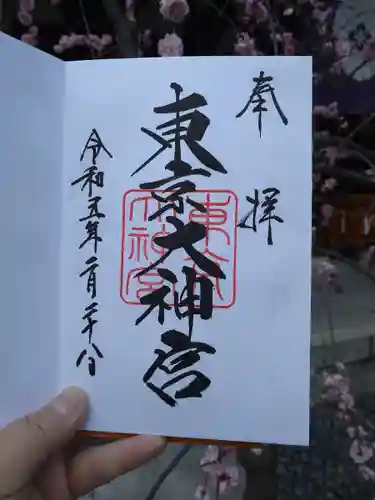 奉拝
東京大神宮
東京大神宮
令和五年二月二十八日